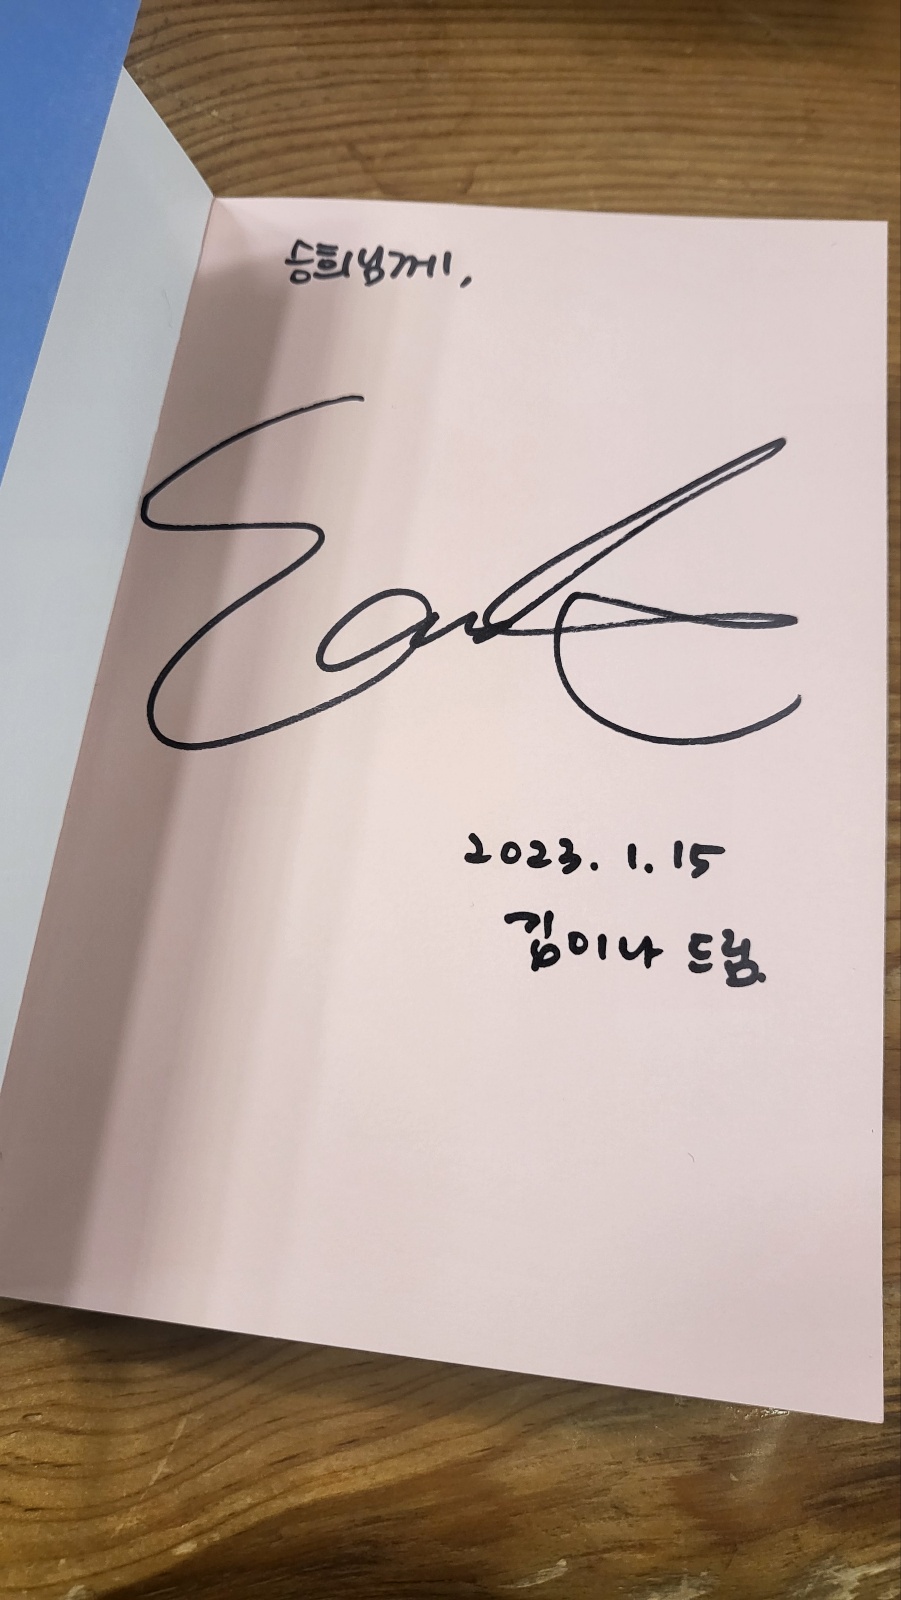 승희님께,
2023. 1. 15
김이나 드림.